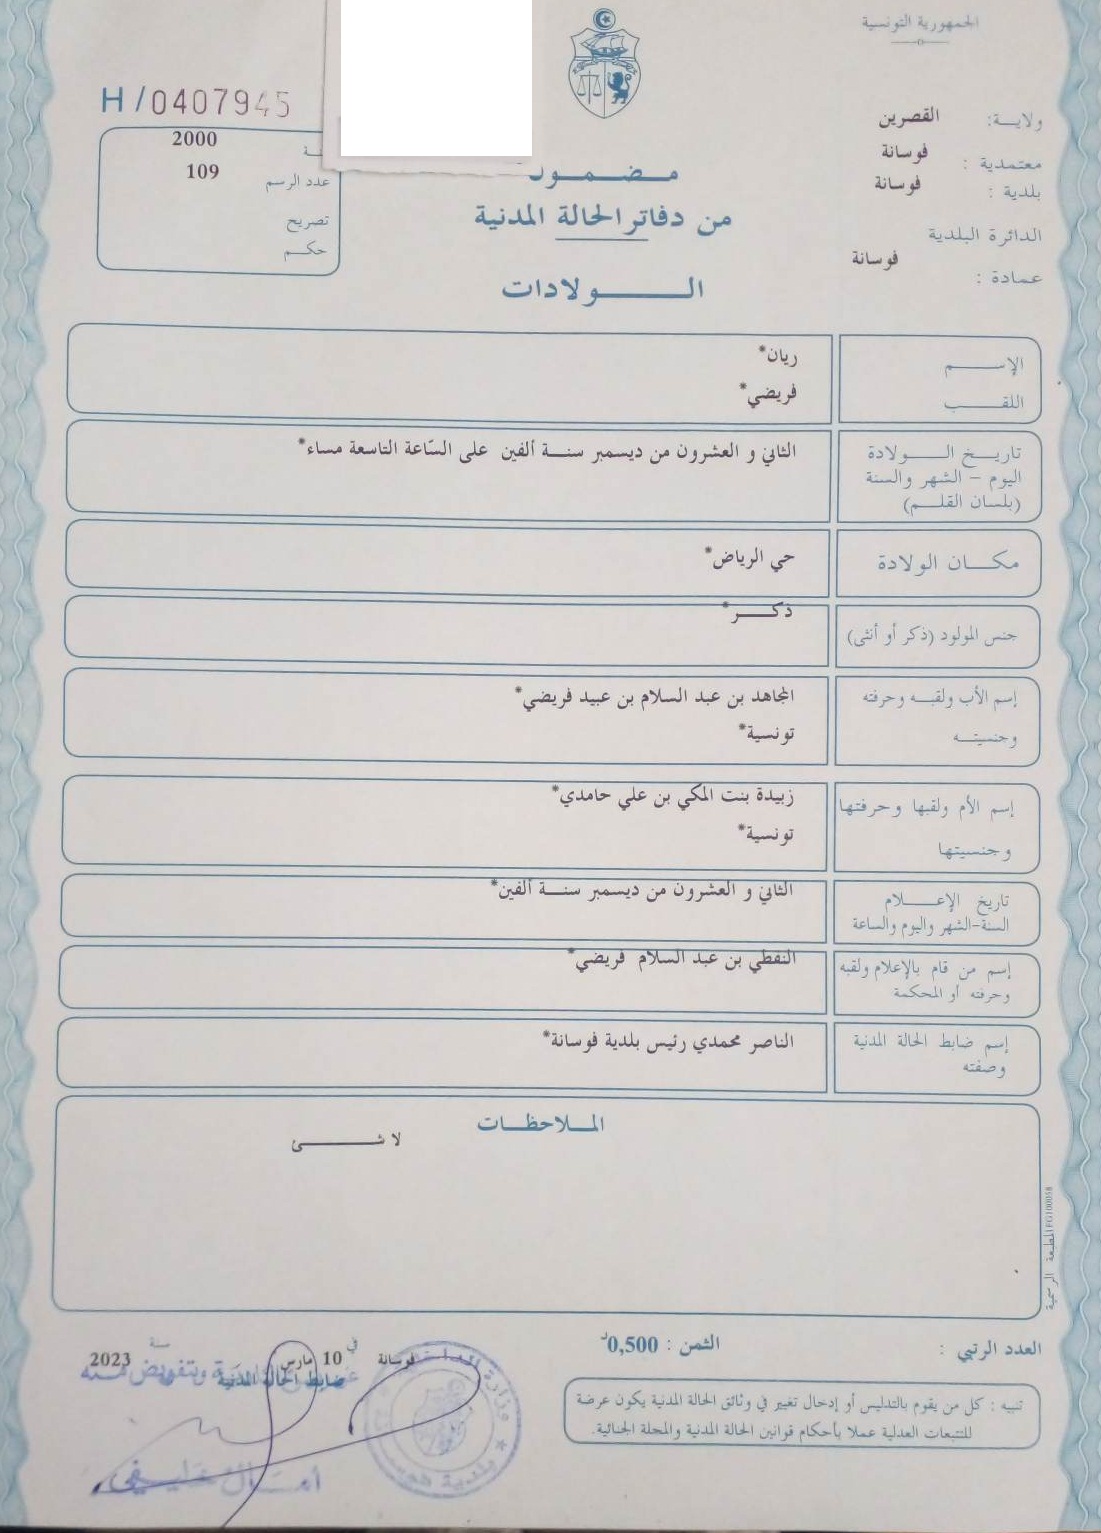 الجمهورية التونسية
ولايـــة: القصرين
معتمدية : فوسانة
بلدية : فوسانة
الدائرة البلدية
عمادة : فوسانة
H/0407945
2000
عدد الرسم 109
تصريح
حكـــم
مـــضـــمـــو
من دفاتر الحالة المدنية
الـــــولادات
الإســـــم ريان*
اللقـــب فريضي*
تاريــخ الـــــولادة الثاني و العشرون من ديسمبر سنـــة ألفين على السّاعة التاسعة مساء*
اليوم – الشهر والسنة
(بلسان القلـــم)
مكـــان الولادة حي الرياض*
جنس المولود (ذكر أو أنثى) ذكـــــر*
إسم الأب ولقبـــه وحرفته المجاهد بن عبد السلام بن عبيد فريضي*
وجنسيتـــه تونسية*
إسم الأم ولقبها وحرفتها زبيدة بنت المكي بن علي حامدي*
وجنسيتها تونسية*
تاريخ الإعـــــلام الثاني و العشرون من ديسمبر سنـــة ألفين*
السنة-الشهر واليوم والساعة
إسم من قام بالإعلام ولقبه النفطي بن عبد السلام فريضي*
وحرفته أو المحكمة
إسم ضابط الحالة المدنية الناصر محمدي رئيس بلدية فوسانة*
وصفته
المــلاحظــات
لا شـــــــئ
المطبعة الرسمية FG100058
العدد الرتبي :
الثمن : 0,500د
فوسانة في 10 مارس سنة 2023
ضابط الحالة المدنية
وبتفويض منه
تنبيه : كل من يقوم بالتدليس أو إدخال تغيير في وثائق الحالة المدنية يكون عرضة
للتتبعات العدلية عملا بأحكام قوانين الحالة المدنية والمجلة الجنائية.